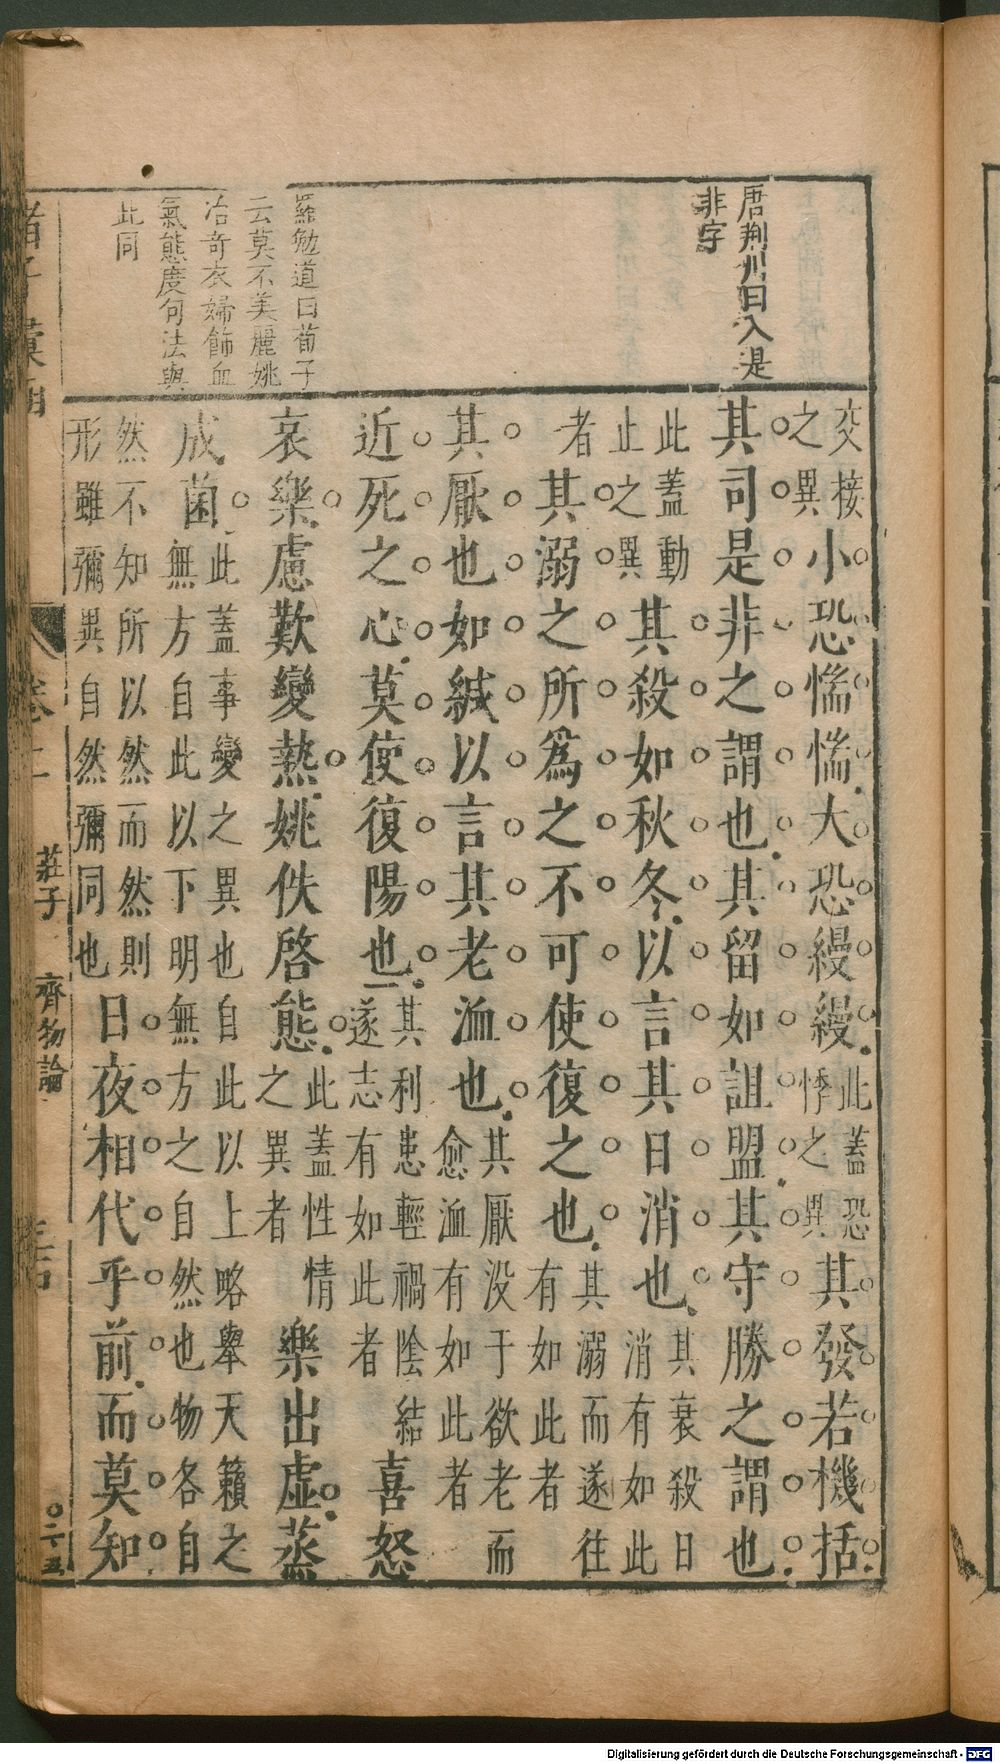 唐荆川曰入是
非字
羅勉道曰荀子
云莫不美麗姚
冶奇衣婦飾血
氣態度句法與
此同
交接之異小恐惴惴大恐縵縵此蓋恐悸之異其發若機括
其司是非之謂也其留如詛盟其守勝之謂也
此蓋動止之異其殺如秋冬以言其日消也其衰殺日消有如此
者其溺之所為之不可使復之也其溺而遂往有如此者
其厭也如緘以言其老洫也其厭没于欲老而愈洫有如此者
近死之心莫使復陽也其利患輕禍陰結遂志有如此者喜怒
哀樂慮歎變熱姚佚啓態此蓋性情之異者樂出虛蒸
成菌此蓋事變之異也自此以上略舉天籟之無方自此以下明無方之自然也物各自
然不知所以然而然則形雖彌異自然彌同也日夜相代乎前而莫知
莊子 齊物論
Digitalisierung gefördert durch die Deutsche Forschungsgemeinschaft - DFG